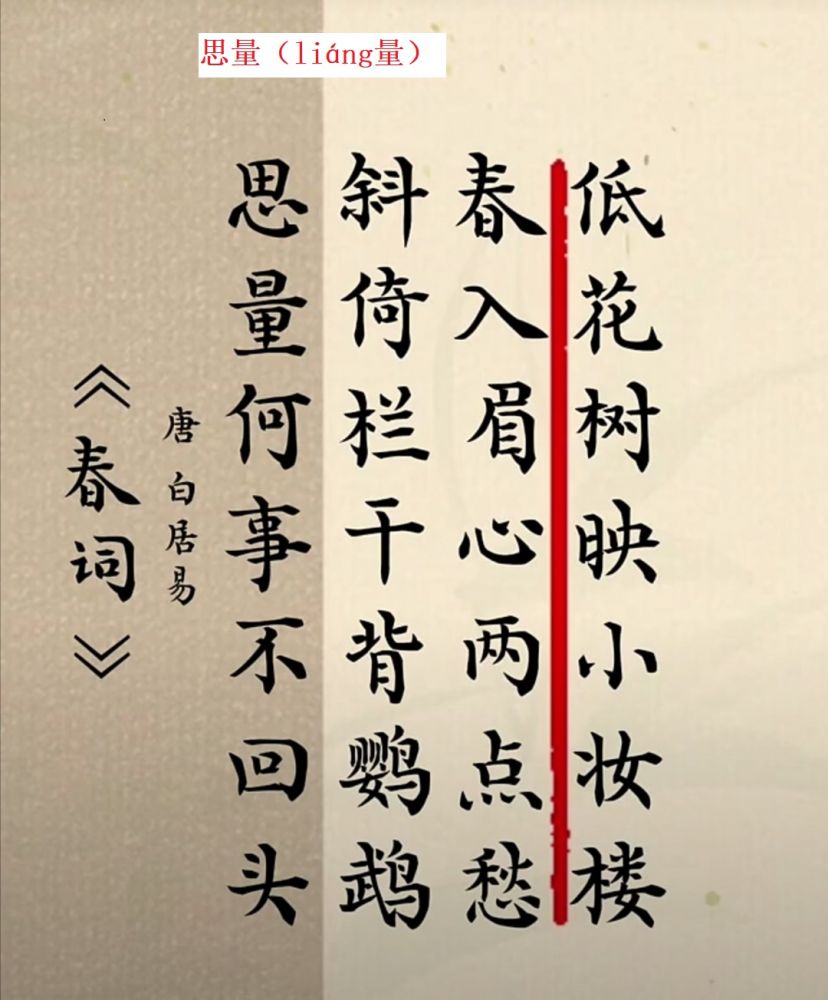 思量（liáng量）
低花树映小妆楼
春入眉心两点愁
斜倚栏干背鹦鹉
思量何事不回头
唐 白居易
《春词》